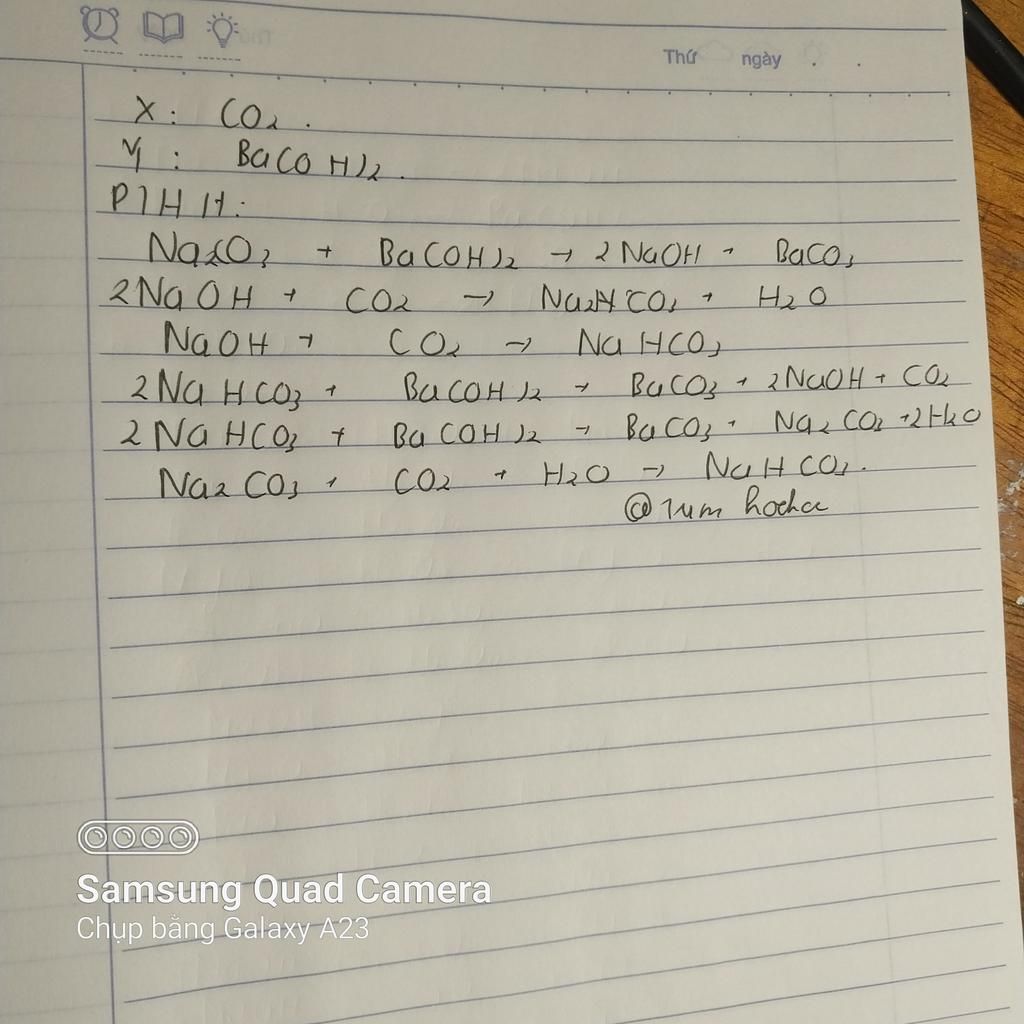 Thứ ngày . .
X : CO2 .
Y : Ba(OH)2 .
PTHH:
Na2CO3 + Ba(OH)2 → 2NaOH + BaCO3
2NaOH + CO2 → Na2HCO3 + H2O
NaOH + CO2 → NaHCO3
2NaHCO3 + Ba(OH)2 → BaCO3 + 2NaOH + CO2
2NaHCO3 + Ba(OH)2 → BaCO3 + Na2CO3 + 2H2O
Na2CO3 + CO2 + H2O → NaHCO3.
Samsung Quad Camera
Chụp bằng Galaxy A23